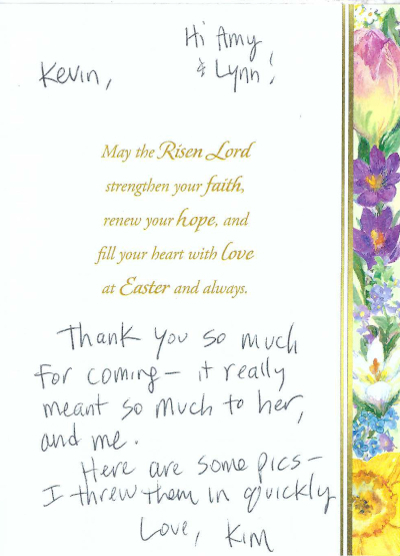 Hi Amy
Kevin, & Lynn!
May the Risen Lord
strengthen your faith,
renew your hope, and
fill your heart with love
at Easter and always.
Thank you so much
for coming — it really
meant so much to her,
and me.
Here are some pics —
I threw them in quickly
Love, Kim